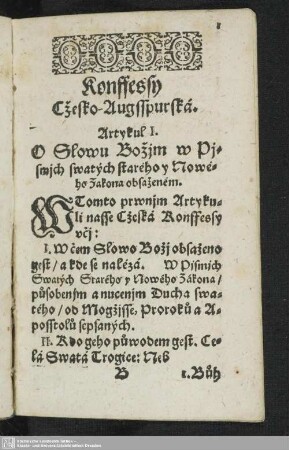 Konffessy
Cžesko-Augsspurská.
Artykul I.
O Slowu Božjm w Pj-
smjch swatých starého y Nowé-
ho Zákona obsaženém.
W Tomto prwnjm Artyku-
li nasse Cžeská Konffessy
včj:
I. W čem Slowo Božj obsaženo
gest / a kde se nalézá. W Pjsmjch
Swatých Starého y Nového Zákona /
působenjm a nucenjm Ducha swa-
tého / od Mogžjsse, Proroků a A-
posstolů sepsaných.
II. Kdo geho půwodem gest. Ce-
lá Swatá Trogice: Neb
B 1. Bůh